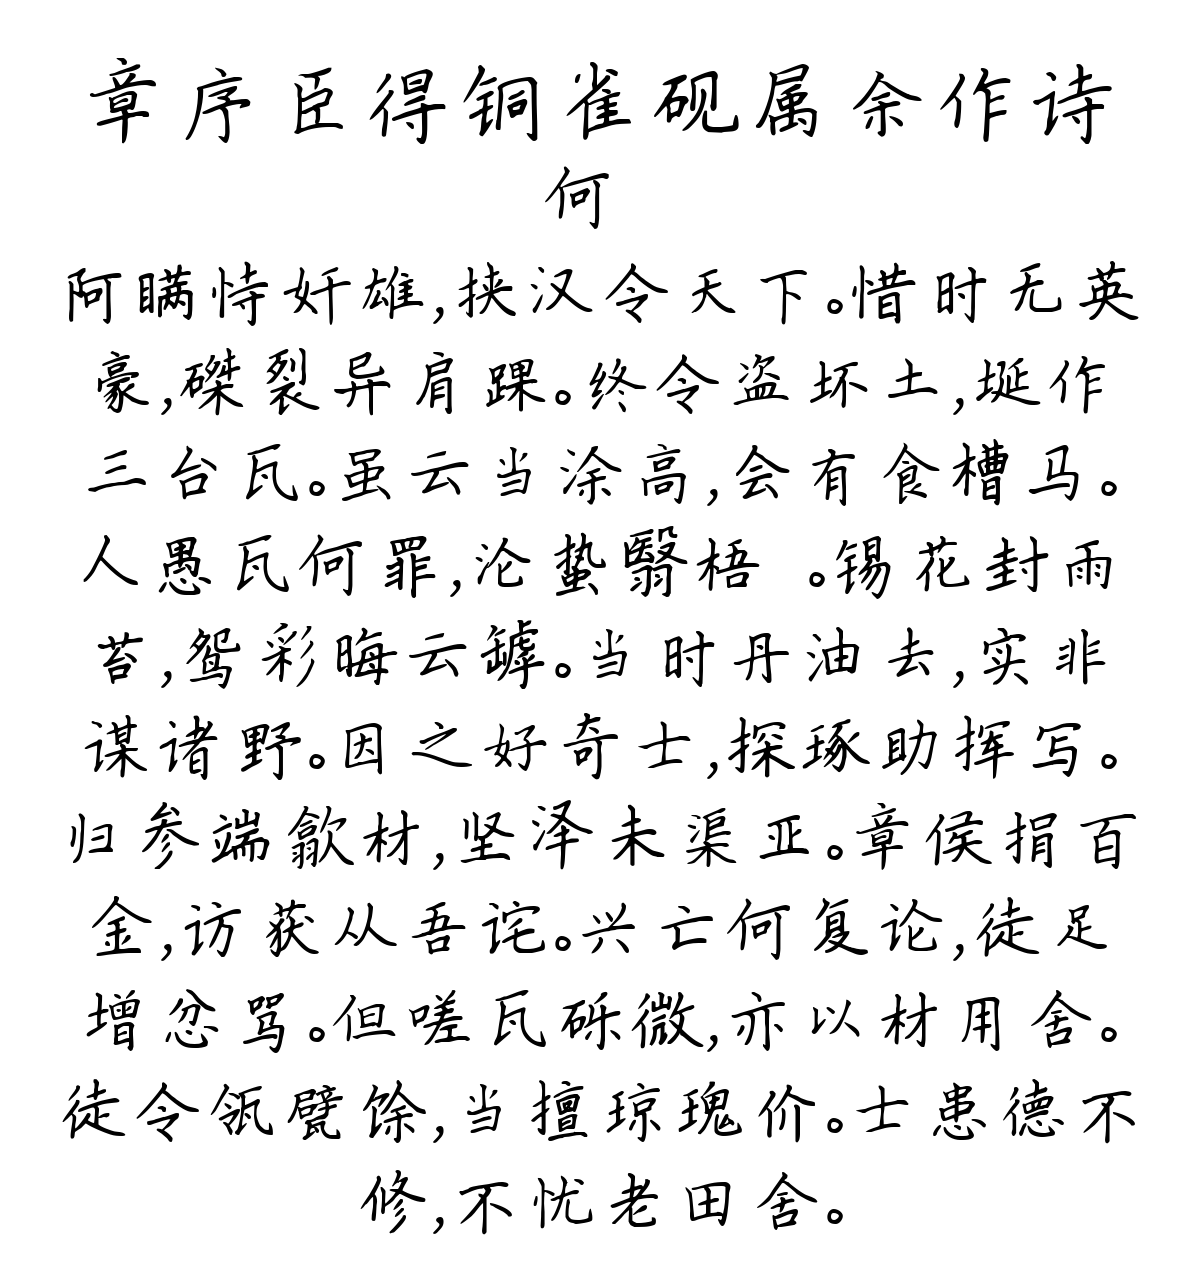 章序臣得铜雀砚属余作诗
何
阿瞒恃奸雄,挟汉令天下。惜时无英
豪,磔裂异肩踝。终令盗坏土,埏作
三台瓦。虽云当涂高,会有食槽马。
人愚瓦何罪,沦蛰翳梧 。锡花封雨
苔,鸳彩晦云罅。当时丹油去,实非
谋诸野。因之好奇士,探琢助挥写。
归参端歙材,坚泽未渠亚。章侯捐百
金,访获从吾诧。兴亡何复论,徒足
增忿骂。但嗟瓦砾微,亦以材用舍。
徒令瓴甓馀,当擅琼瑰价。士患德不
修,不忧老田舍。